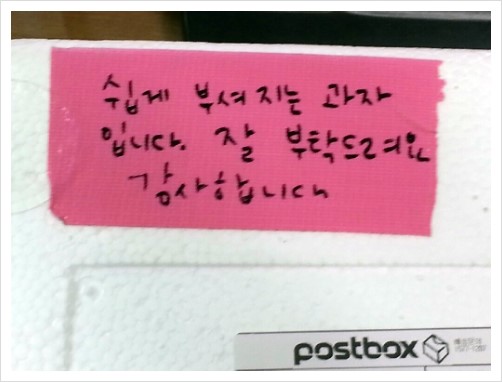 쉽게 부셔지는 과자
입니다. 잘 부탁드려요
감사합니다
postbox